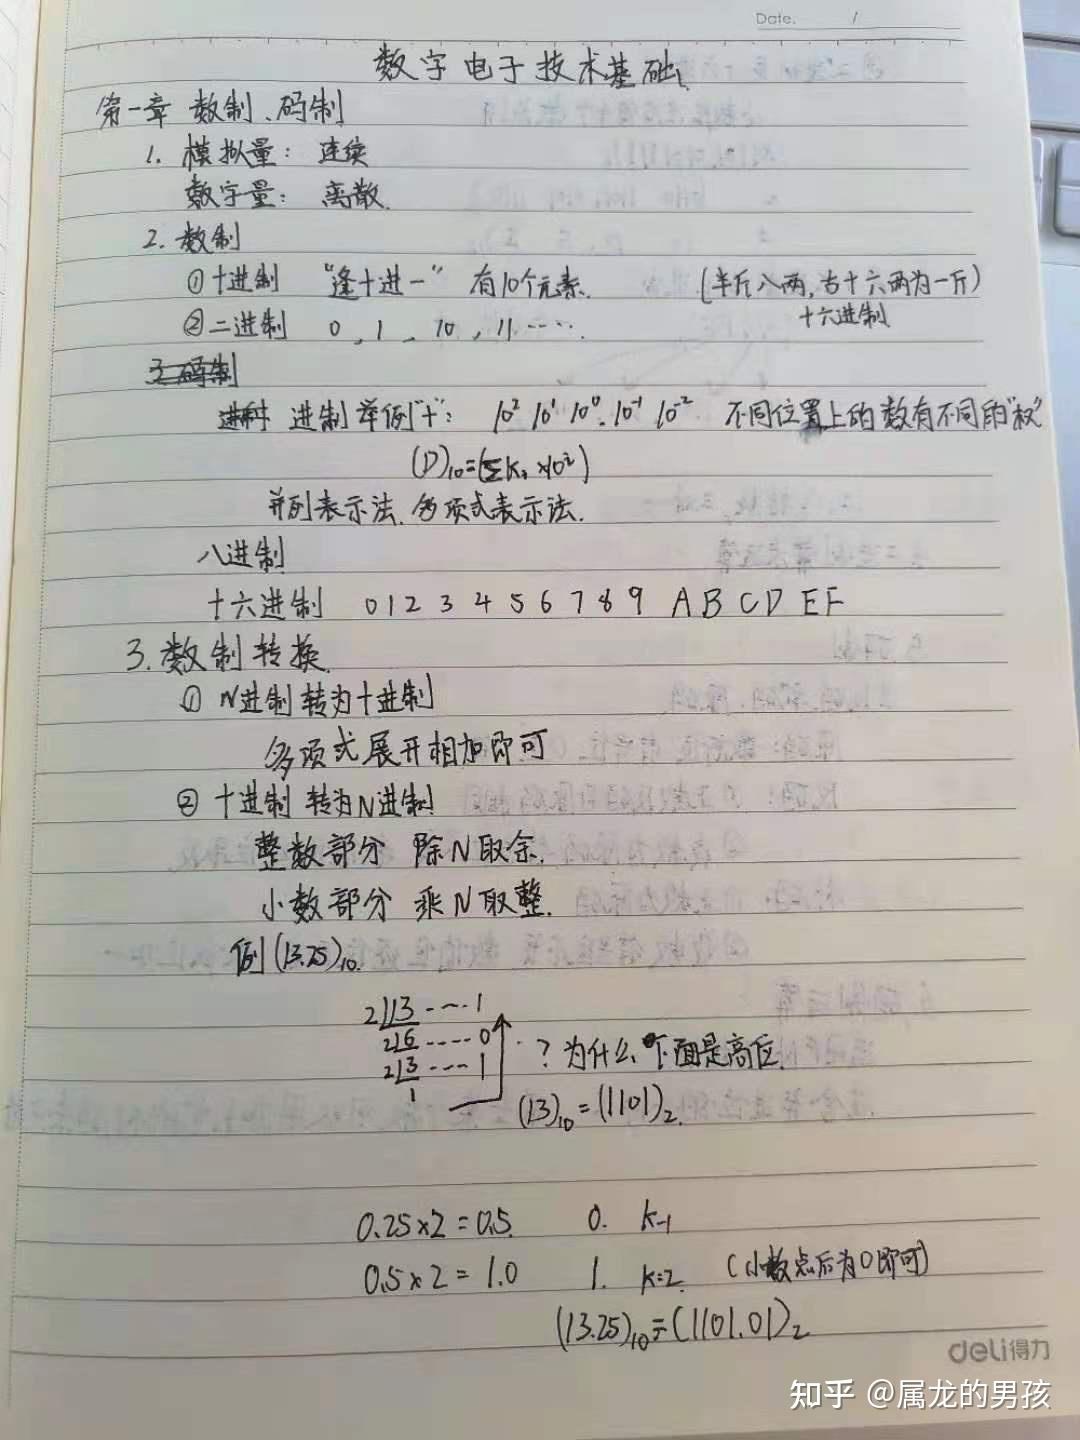 Date. /
数字电子技术基础
第一章 数制、码制
1. 模拟量: 连续
数字量: 离散.
2. 数制
①十进制 "逢十进一" 有10个元素. (半斤八两,古十六两为一斤)
十六进制
②二进制 0, 1, 10, 11.....
3 码制
进制举例"十": 10² 10¹ 10⁰. 10⁻¹ 10⁻² 不同位置上的数有不同的"权"
并列表示法. 多项式表示法.
八进制
十六进制 0 1 2 3 4 5 6 7 8 9 A B C D E F
3. 数制转换.
① N进制转为十进制
多项式展开相加即可
② 十进制转为N进制
整数部分 除N取余.
小数部分 乘N取整.
例(13.25)₁₀.
2|13 ---- 1
2|6 ..... 0
2|3 ---- 1
1
? 为什么下面是高位.
(13)₁₀ = (1101)₂.
0.25×2 = 0.5. 0. K-1
0.5×2 = 1.0 1. K=2 (小数点后为0即可)
(13.25)₁₀ = (1101.01)₂
deli得力
知乎 @属龙的男孩